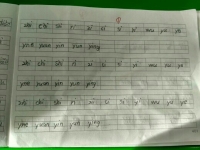 zhi chi shi ri zi ci si yi wu yu ye
yue yuan yin yun ying
zhi chi shi ri zi ci si yi wu yu ye
yue yuan yin yun ying
zhi chi shi ri zi ci si yi wu yu ye
yue yuan yin yun ying